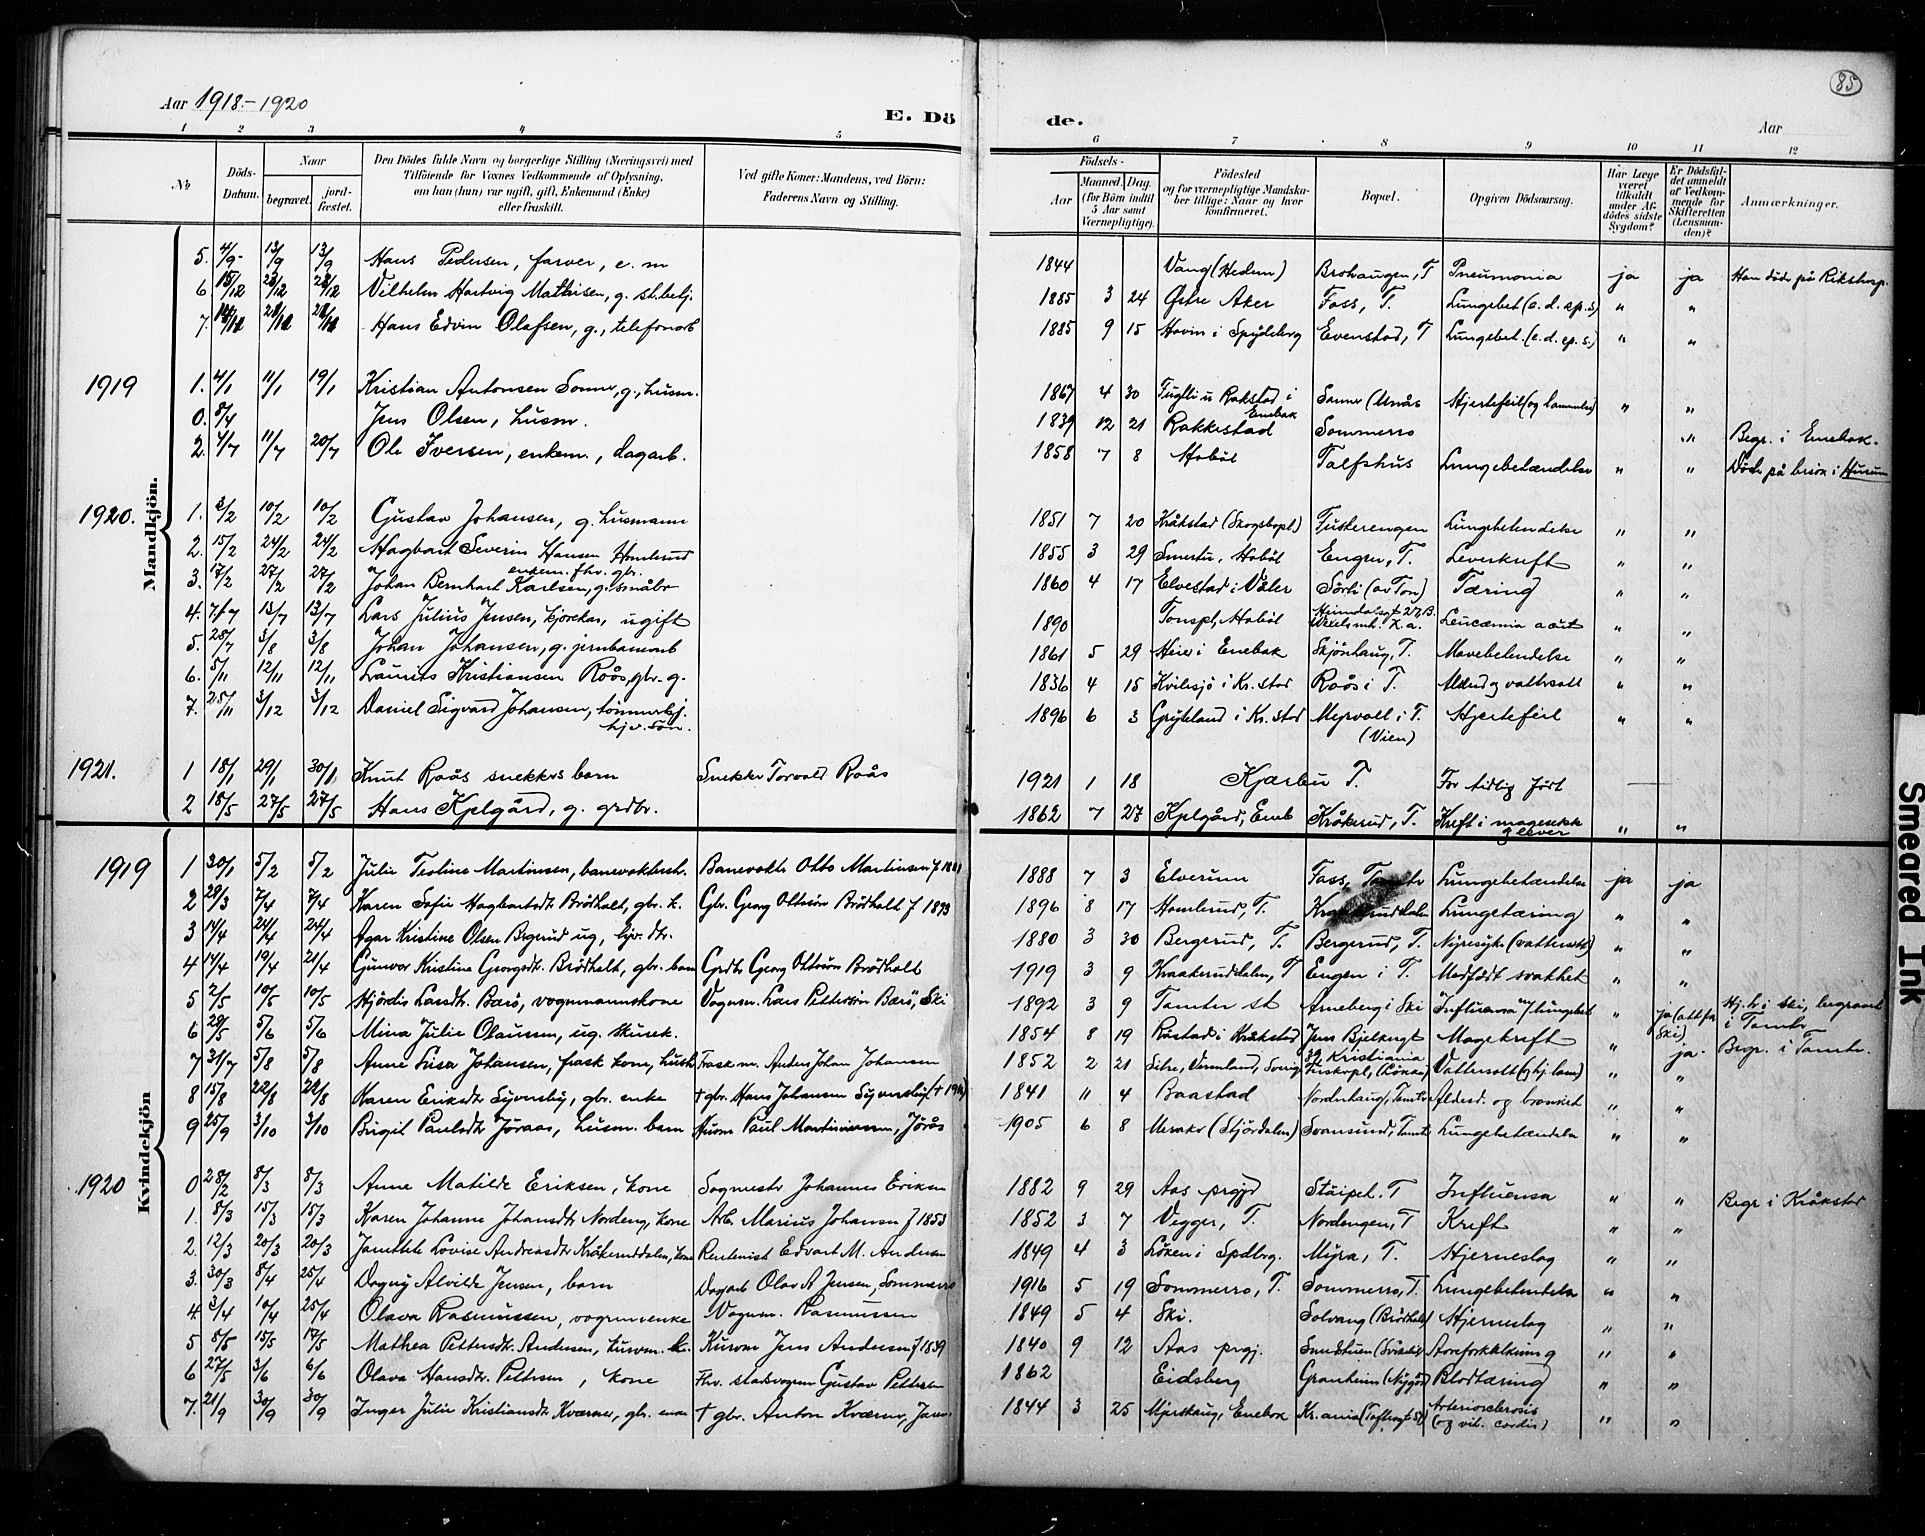 Aar 1918-1920
E. Döde.
85
Aar
1 2 3 4 5 6 7 8 9 10 11 12
No
Döds-Datum.
Naar
begravet.
jord-fæstet.
Den Dödes fulde Navn og borgerlige Stilling (Næringsvei) med Tilföiende for Voxnes Vedkommende af Oplysning, om han (hun) var ugift, gift, Enkemand (Enke) eller fraskilt.
Ved gifte Koner: Mandens, ved Börn: Faderens Navn og Stilling.
Födsels-
Aar
Maaned. Dag.
(for Börn indtil 5 Aar samt Værnepligtige).
Födested og for værnepligtige Mandskaber tillige: Naar og hvor konfirmeret.
Bopæl.
Opgiven Dödsaarsag.
Har Læge været tilkaldt under Afdödes sidste Sygdom?
Er Dödsfaldet anmeldt af Vedkommende for Skifteretten (Lensmanden)?
Anmærkninger.
Mandkjön.
5. 4/9 13/9 13/9 Hans Pedersen, farver, e. m 1844 Vang (Hedem) Brohaugen, T Pneumonia ja ja Han döde på Rikshosp.
6. 15/12 23/12 23/12 Vilhelm Hartvig Mathisen, g. st.betj. 1885 3 24 Östre Aker Foss, T. Lungebet (e. d. ep. s) " "
7. Hans Edvin Olafsen, g., telefonarb 1885 9 15 Hovin i Spydeberg Evenstad, T Lungebet. (e. d. ep. s.) " "
1919 1. 4/1 11/1 19/1 Kristian Antonsen Sonner, g., husm. 1867 4 30 Rakstad i Enebak Sonner Hjertefeil " "
0. 8/4 Jens Olsen, husm. 1839 12 21 Rakkestad Sommerro " Begr. i Enebak.
2. 4/7 11/7 20/7 Ole Iversen, enkem., dagarb. 1858 7 8 Hobøl Tolfshus Lungebetændelse " " Döde på besök i Hurum
1920. 1. 2/2 10/2 10/2 Gustav Johansen, g. husmann 1851 7 20 Kråkstad (Skogsbopl) Tusterengen Lungebetendelse " "
2. 15/2 24/2 24/2 Hagbart Severin Hansen Homlerud enkem. fhv. gbr. 1855 3 29 Smertu, Hobøl Enger, T. Leverkreft " "
3. 17/2 27/2 27/2 Johan Bernhart Karlsen, g. småbr 1860 4 17 Elvestad i Våler Sörli (av Ton) Tæring " "
4. 7/7 13/7 13/7 Lars Julius Jensen, kjörekar, ugift 1890 Tonspl, Hobøl Leucæmia acut " "
5. 28/7 3/8 3/8 Johan Johansen, g. jernbanearb 1861 5 29 Heier i Enebak Skjönhaug, T. Mavebetendelse " "
6. 5/11 12/11 12/11 Laurits Kristiansen Roås, gbr. g. 1836 4 15 Kvilesjö i Kr.stad Roås i T. Alderd og vattersott " "
7. 25/11 3/12 3/12 Daniel Sigvard Johansen, tömmerhj. hjv. sön. 1896 6 3 Gryteland i Kr.stad Myrvoll i T. (Vien) Hjertefeil " "
1921. 1 18/1 29/1 30/1 Knut Roås snekkers barn Snekker Torvald Roås 1921 1 18 Kjærbu T. For tidlig född
2 18/5 27/5 27/5 Hans Kjelgård, g. grdbr. 1862 7 27 Kjelgård, Eneb Kråkerud, T. Kreft i magesekk og lever " "
Kvindekjön
1919 1 30/1 5/2 5/2 Julie Teoline Martinsen, banevokterk. Banevokter Otto Martinsen f 1881 1888 7 3 Elverum Foss, Tomter Lungebetændelse ja ja
2 29/3 7/4 7/4 Karen Sofie Hagbartsdt Brödholt, gbr. k. Gbr. Georg Ottesön Brödholt f 1893 1896 8 17 Homlerud, T. Lungetæring " "
3 14/4 24/4 24/4 Agar Kristine Olsen Bergerud ug, hjv. dtr. 1880 3 30 Bergerud, T. Bergerud, T. Nyresyke (vattersott) " "
4 14/4 19/4 21/4 Gunvor Kristine Georgsdt. Brödholt, gbr. barn Grdbr Georg Ottesön Brödholt 1919 3 9 Kraakeruddalen, T Engen i T. Medfödt svakhet " "
5 2/5 10/5 10/5 Hjördis Larsdt. Barö, vognmannskone Vognm. Lars Pettersön Barö, Ski 1892 3 9 Tomter st Aneberg i Ski Influensa m/ lungebet " ja (att fra Ski) Hj. b. i Ski, begravet i Tomter
6 29/5 5/6 5/6 Mina Julie Olaussen, ug. husek. 1854 8 19 Röstad i Kråkstad Jens Bjelkesgt 39 Kristiania Magekreft " ja. Begr. i Tomter.
7 31/7 5/8 5/8 Anne Lisa Johansen, frask kone, Frask m. Anders Johan Johansen 1852 2 21 Silre, Vermland, Sverig Vattersott (og hj. lam) " "
8 15/8 22/8 22/8 Karen Eriksdt Syversby, gbr. enke + gbr. Hans Johansen Syversby 1841 11 4 Baastad Norderhaug, Tomter Aldersd. og bronkit " "
9 25/9 3/10 3/10 Birgit Paulsdt Jöraas, husm. barn Husm Paul Martiniussen, Jörås 1905 6 8 Meraker (Stjördalen) Svansund, Tomter Lungebetændelse " "
1920 0 28/2 8/3 8/3 Anne Matilde Eriksen, kone Sagmestr Johannes Eriksen 1882 9 29 Aas prgjd Ståipet. T Influensa " " Begr i Kråkstad
1. 8/3 15/3 15/3 Karen Johanne Johansdt Nordeng, kone Arb. Marius Johansen f 1853 1852 3 7 Vegger, T. Nordengen, T Kreft " "
2. 12/3 20/3 20/3 Jonette Lovise Andreasdt Kråkeruddalen, kone Rentenist Edvart M. Andersen 1849 4 3 Löken i Spdbrg. Myra, T. Hjerneslag " "
3. 30/3 8/4 25/4 Dagny Alvilde Jensen, barn Dagarb Olav A Jensen, Sommerro 1916 5 19 Sommerro, T. Sommerro, T. Lungebetendelse " "
4. 3/4 10/4 25/4 Olava Rasmussen, vognm enke Vognm. Rasmussen 1849 5 4 Ski. Solvang (Brödholt) Hjerneslag " "
5 8/5 15/5 17/5 Mathea Pettersdt. Andersen, kurvm. k. Kurvm Jens Andersen f 1839 1840 9 12 Aas prgj. Åreforkalkning " "
6 27/5 3/6 6/6 Olava Hansdt. Pettersen, kone Fhv. stadsvognm Gustav Pettersen 1862 Eidsberg Granheim (Nygård) Blodtæring " "
7. 21/9 30/9 30/9 Inger Julie Kristiansdt Kværner, gbr. enke + gbr. Anton Kværner 1844 3 25 Mjerskaug, Enebak Kr.ania (Toftesgt 57) Arteriosclerosis (og vit. cordis) " "
Smeared Ink